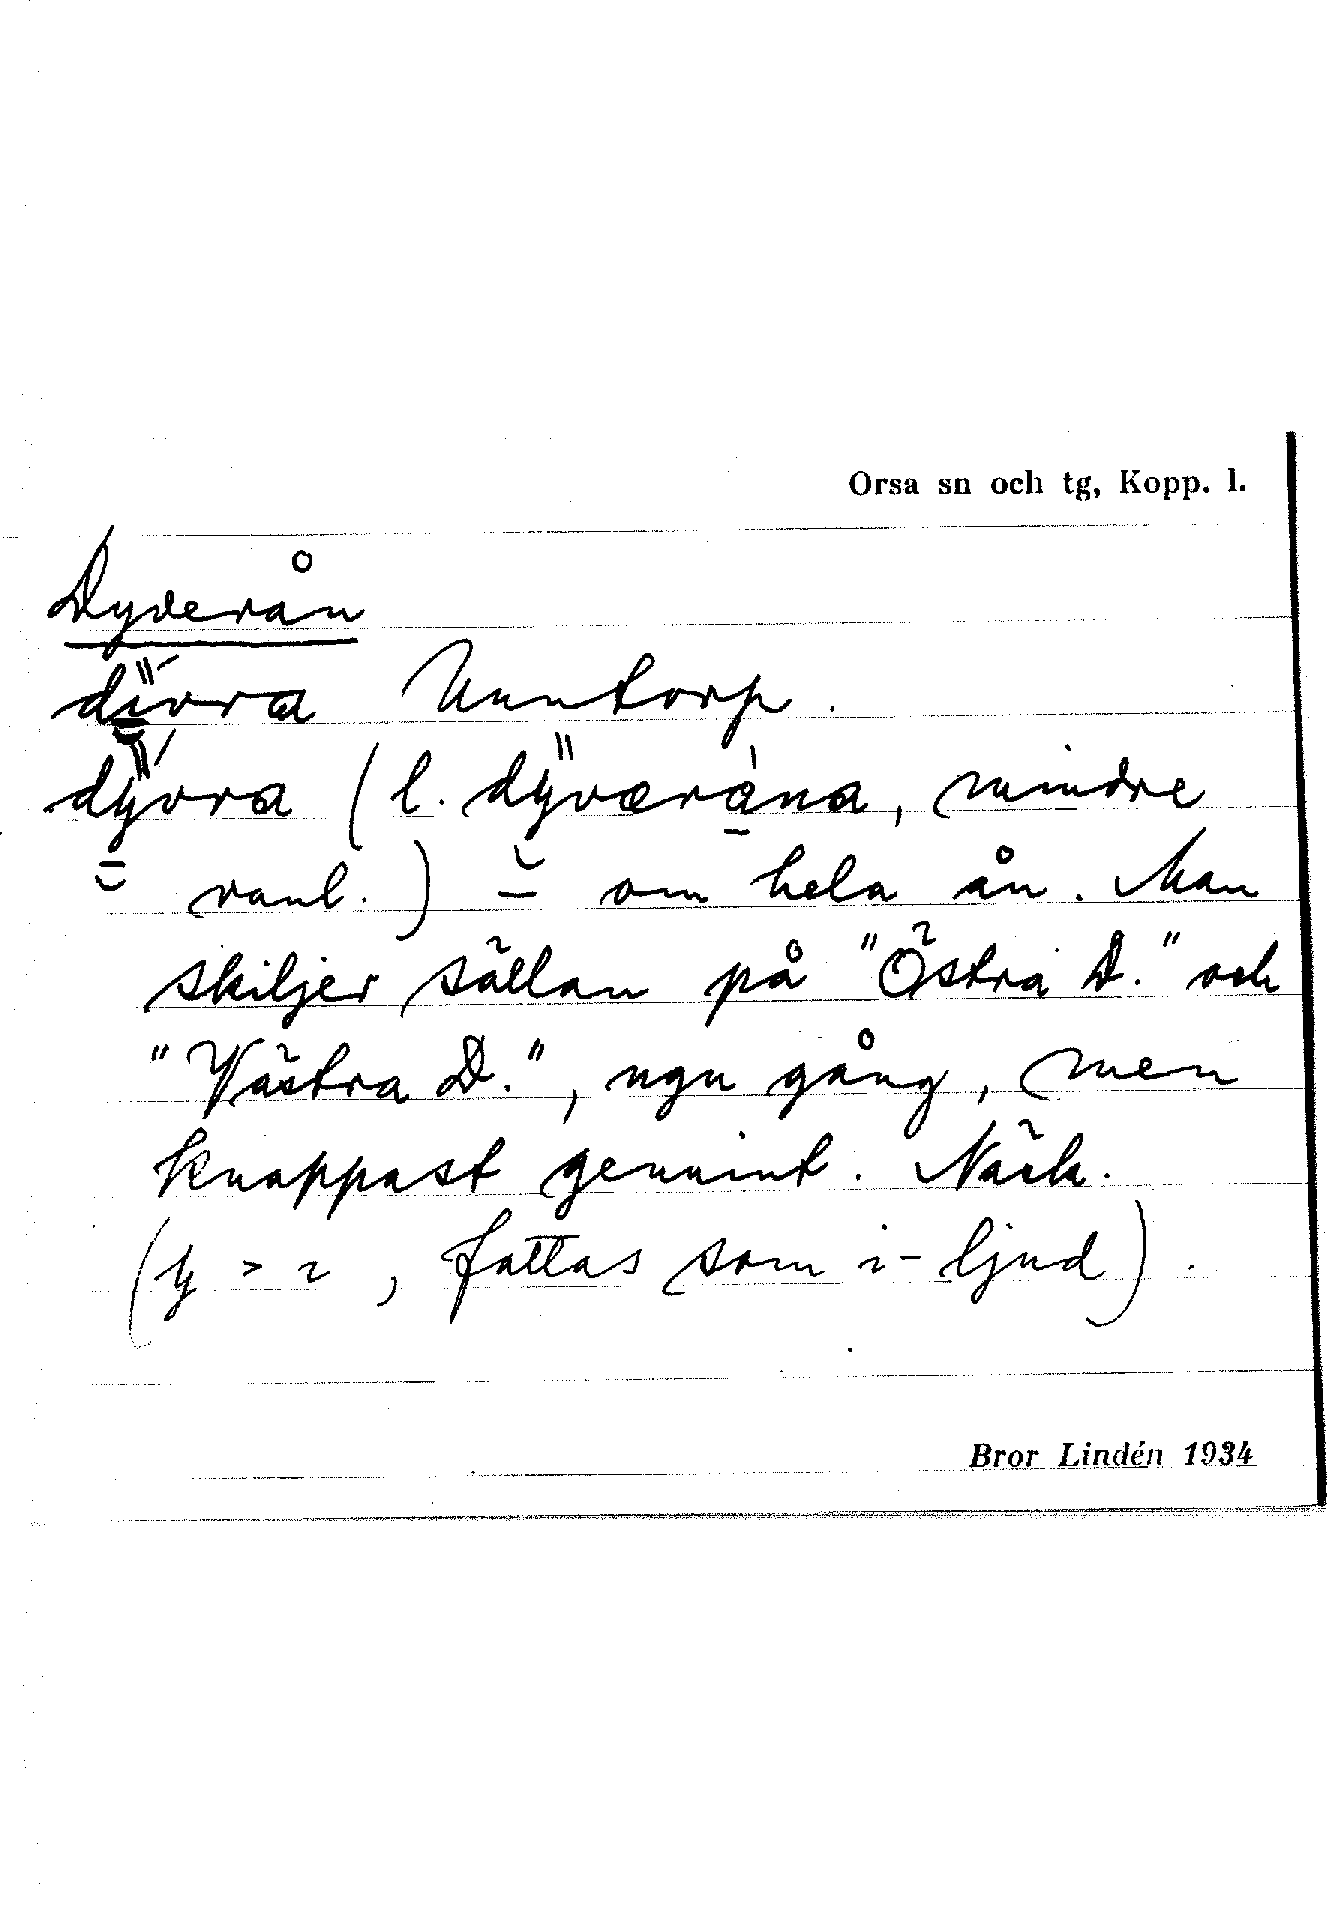 Orsa sn och tg, Kopp. l.
Dyverån
divra Unntorp.
dyvra (l. dyværána, mindre
vanl.) om hela ån. Man
skiljer sällan på "Östra D." och
"Västra D.", ngn gång, men
knappast genuint. Näck.
(y > i, fattas som i-ljud).
Bror Lindén 1934